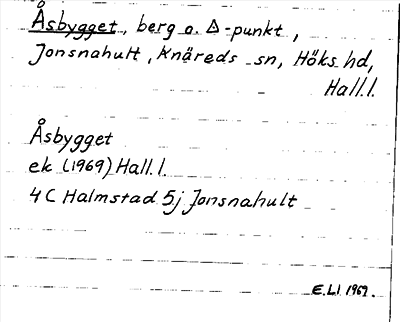 Åsbygget, berg o. Δ-punkt,
Jonsnahult, Knäreds sn, Höks hd,
Hall.l.
Åsbygget
ek (1969) Hall.l.
4C Halmstad 5j Jonsnahult
E.L1 1969.